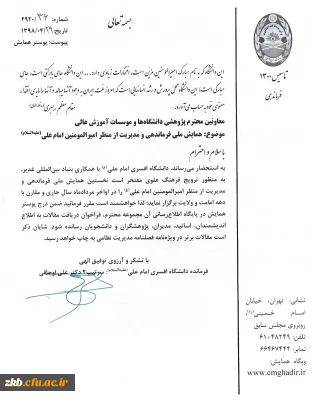 بسمه تعالی
شماره:
تاریخ: ۱۳۹۸/۰۲/۲۹
پیوست: پوستر همایش
تأسیس ۱۳۰۰
فرماندهی
این دانشگاه که به نام مبارک امیرالمومنین مزین است، افتخارات زیادی دارد. ... این دانشگاه جای بابرکتی است، جای
معاونین محترم پژوهشی دانشگاه‌ها و موسسات آموزش عالی
موضوع: همایش ملی فرماندهی و مدیریت از منظر امیرالمومنین امام علی(علیه‌السلام)
با سلام و احترام
به استحضار می‌رساند، دانشگاه افسری امام علی(ع) با همکاری بنیاد بین‌المللی غدیر،
به منظور ترویج فرهنگ علوی مفتخر است نخستین همایش ملی فرماندهی و
مدیریت از منظر امیرالمومنین امام علی(ع) را در اواخر مردادماه سال جاری و مقارن با
دهه امامت و ولایت برگزار نماید؛ لذا خواهشمند است مقرر فرمائید ضمن درج پوستر
همایش در پایگاه اطلاع‌رسانی آن مجموعه محترم، فراخوان دریافت مقالات به اطلاع
اندیشمندان، اساتید، مدیران، پژوهشگران و دانشجویان رسانده شود. شایان ذکر
است مقالات برتر در ویژه‌نامه فصلنامه مدیریت نظامی به چاپ خواهد رسید.
با تشکر و آرزوی توفیق الهی
فرمانده دانشگاه افسری امام علی(علیه‌السلام) سرتیپ۲ دکتر علی
نشانی: تهران، خیابان
امام خمینی(ره)
روبروی مجلس سابق
تلفن: ۶۱۰۴۸۲۴۹
نمابر: ۶۶۴۶۷۴۴۴
وبگاه همایش:
www.emghadir.com
zkb.cfu.ac.ir